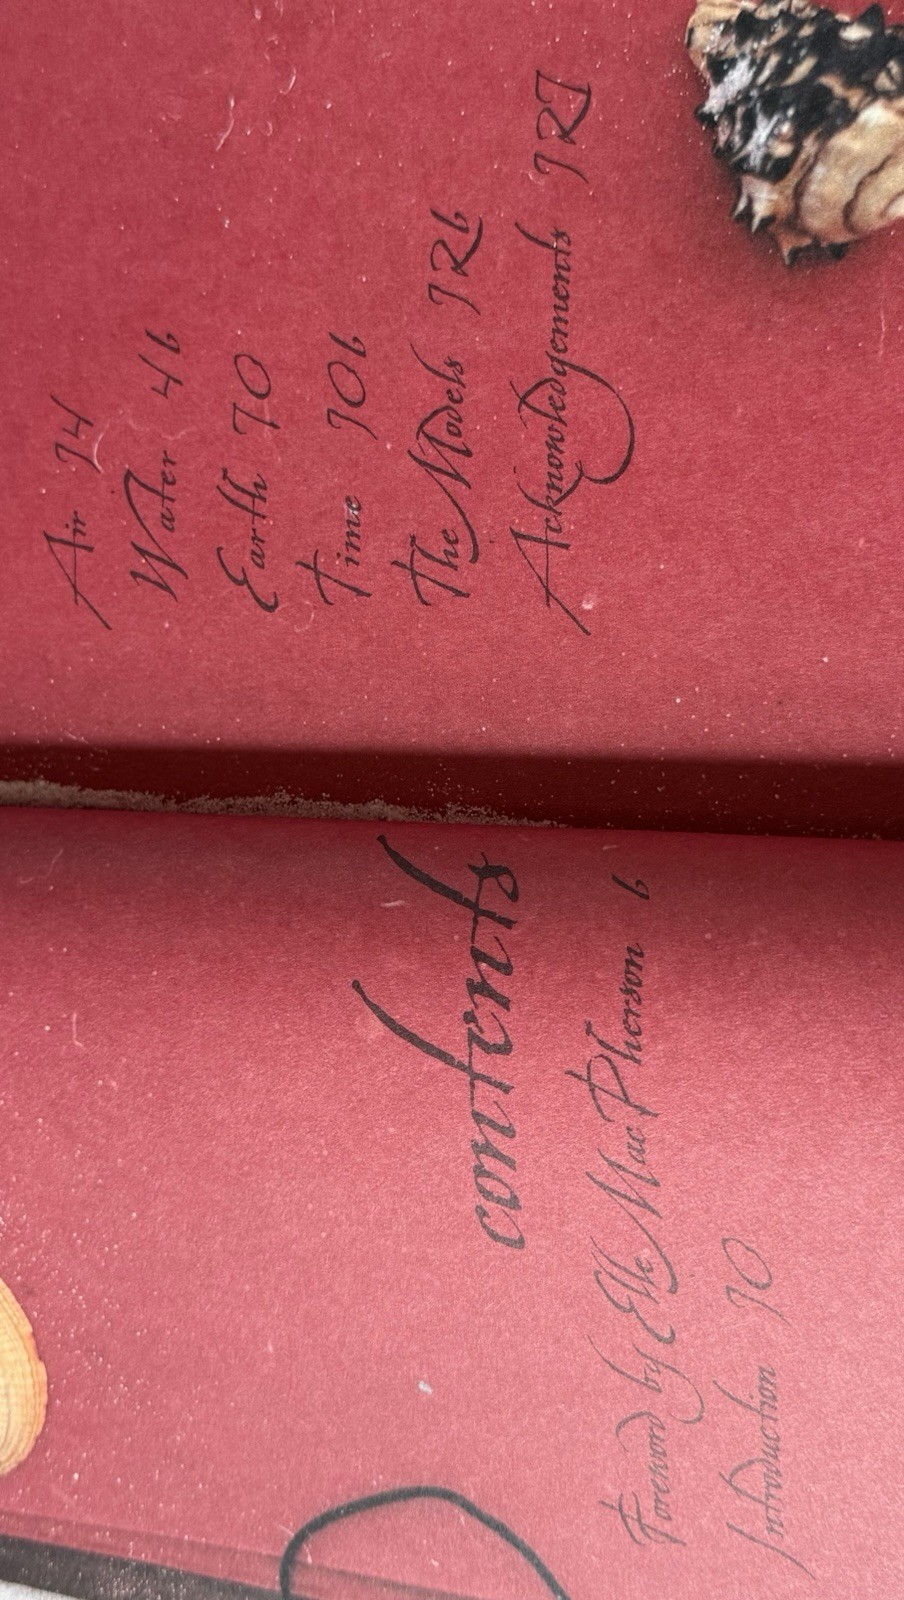 contents
Foreword by Elle MacPherson 6
Introduction 10
Air 14
Water 46
Earth 70
Time 106
The Models 126
Acknowledgements 127